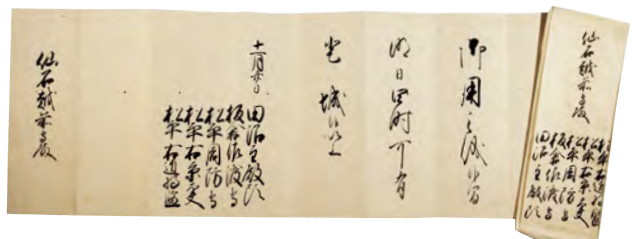 仙石越前守殿
松平右近将監
松平右京大夫
松平周防守
板倉佐渡守
田沼主殿頭
御用之儀候間
明日四時可有
登城候以上
田沼主殿頭
板倉佐渡守
松平周防守
松平右京大夫
松平右近将監
仙石越前守殿